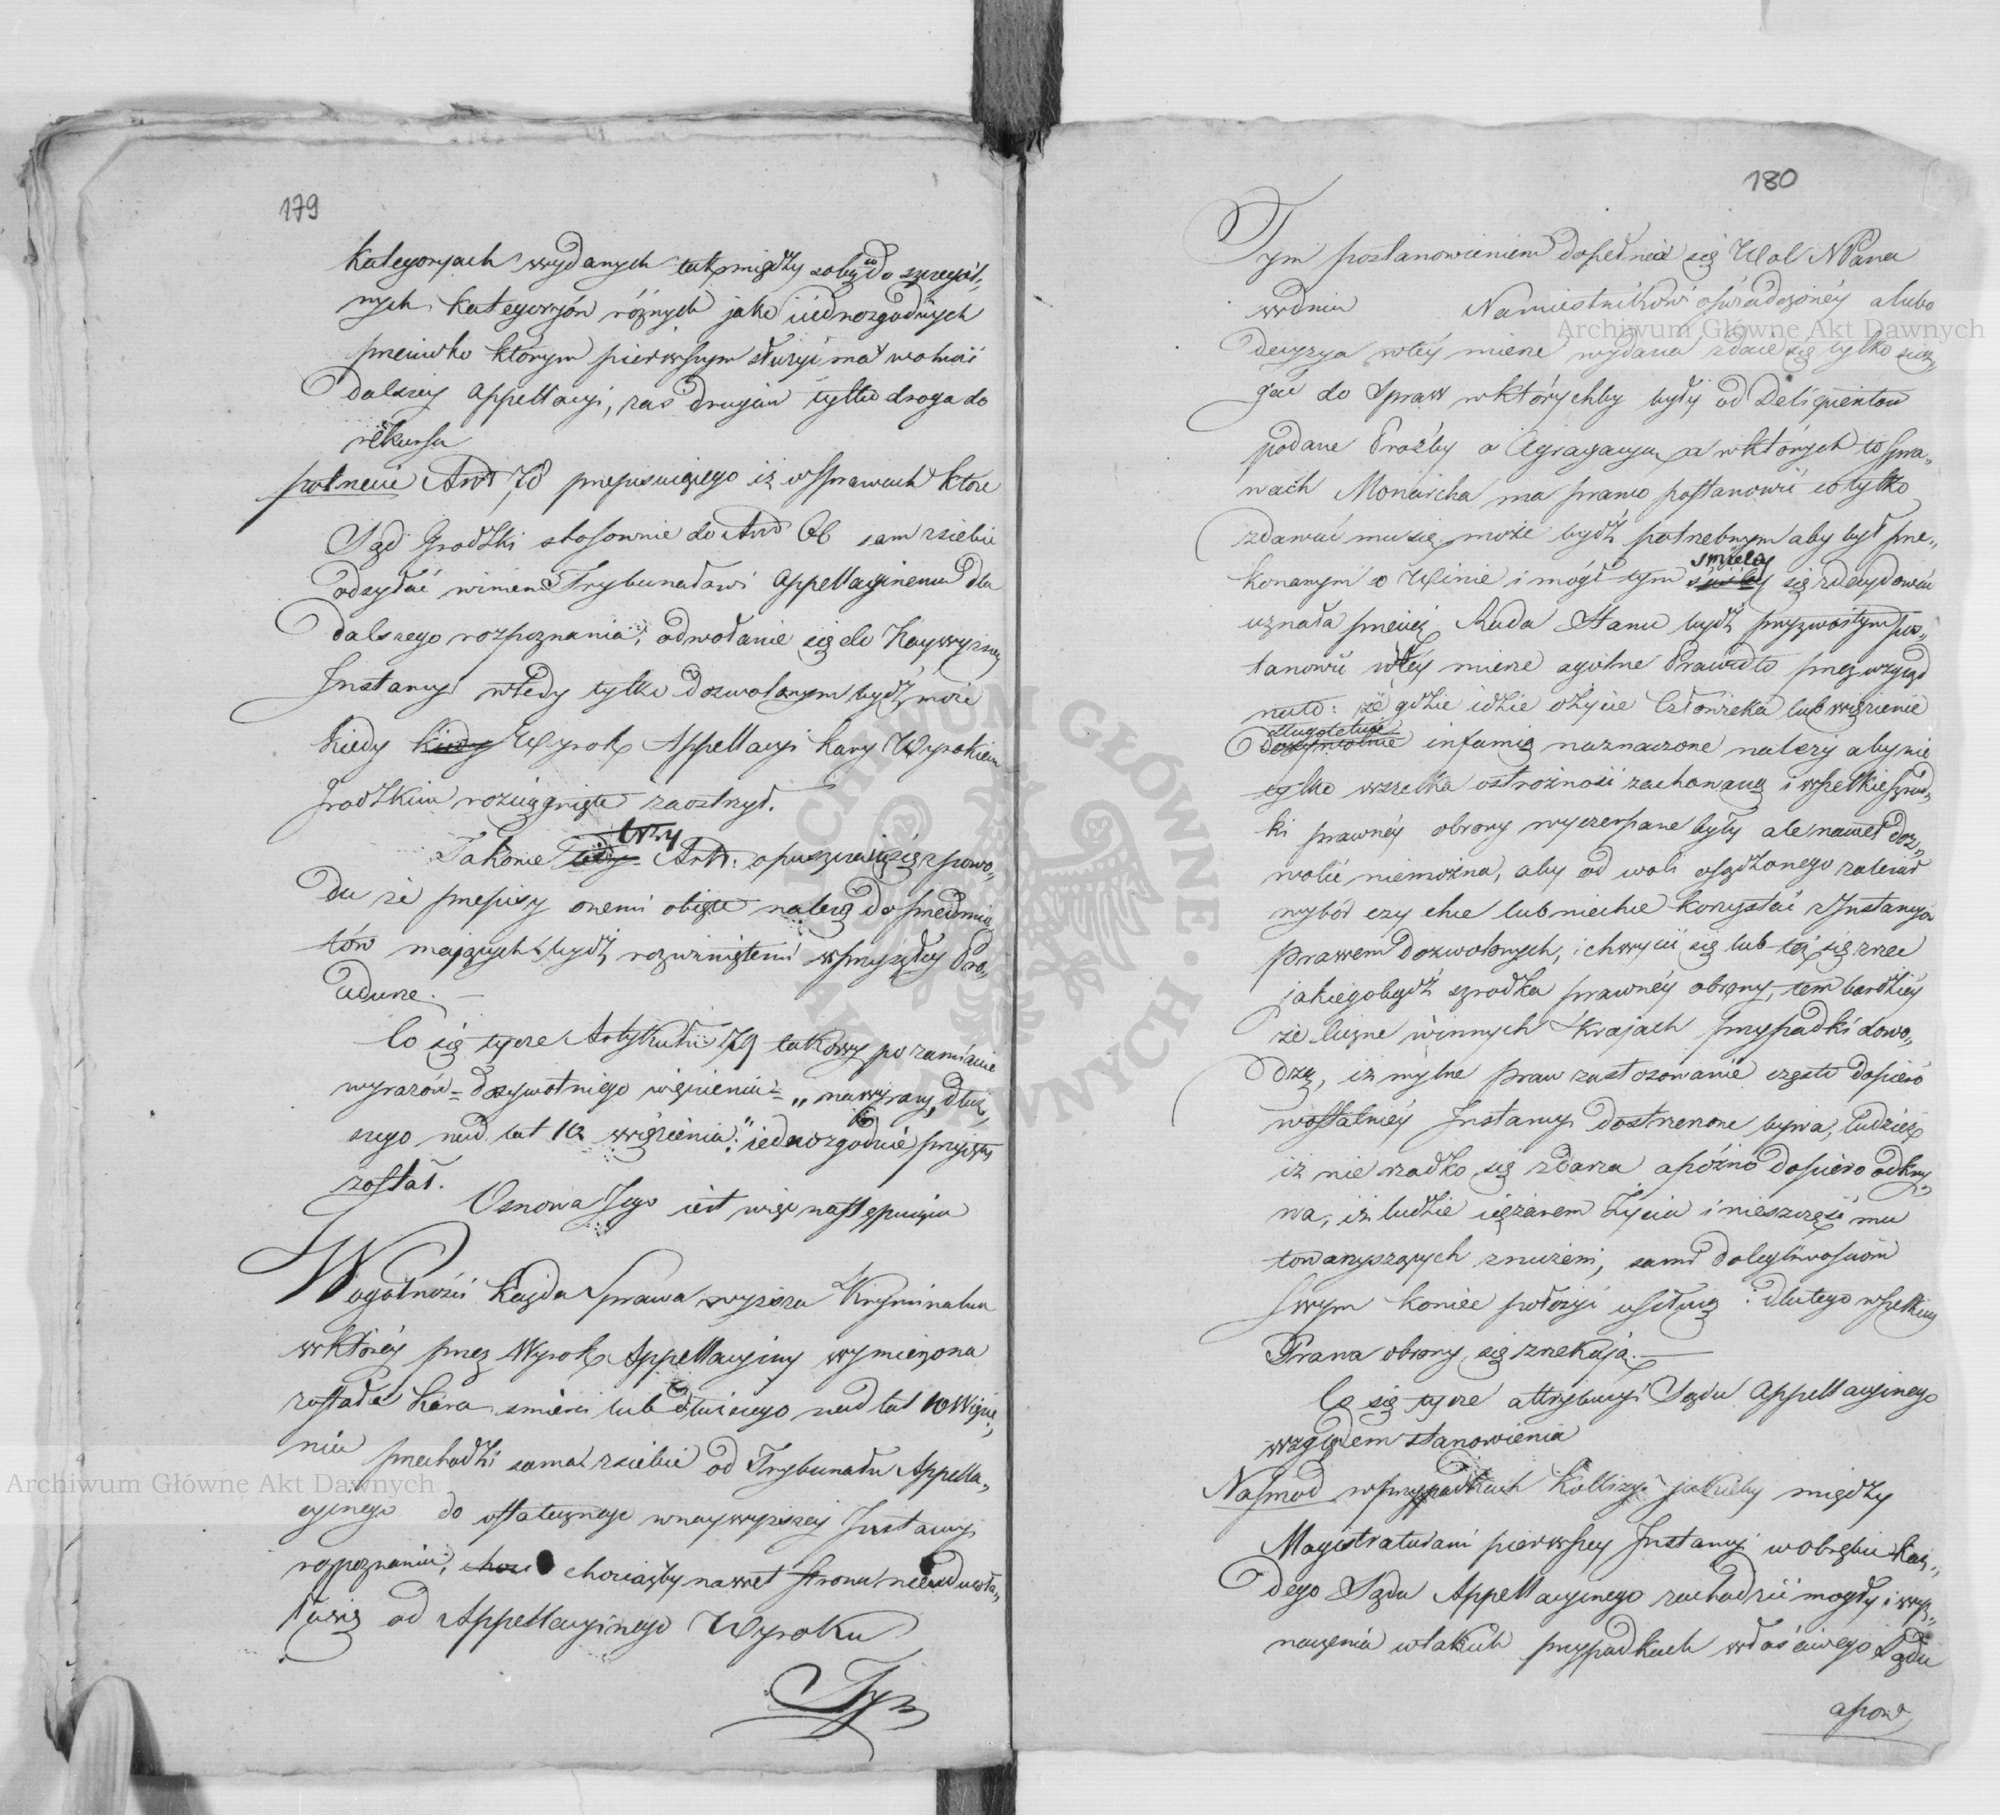 179
kategoryach wydanych tak między sobą co do szczegól„
nych kategoryów różnych jako i iednozgodnych
przeciwko którym pierwszym służyć ma wolność
dalszey appellacyi, zaś drugim tylko droga do
rekursu
potrzecie Artł 78 przepisuiącego iż w sprawach które
Sąd Grodzki stosownie do Artł 96 sam z siebie
odsyłać winien Trybunałowi Appellacyinemu dla
dalszego rozpoznania, odwołanie się do Naywyższey
Instancyi wtedy tylko dozwolonym bydź może
kiedy kiedy Wyrok Appellacyi kary Wyrokiem
Grodzkim rozciągnięte zaostrzył.
Takowe trzy Artł: opuszczaią się z powo„
du że przepisy onemi obięte należą do przedmio
tów maiących bydź rozwiniętemi w przyszłey Pro„
cedurze. —
Co się tycze Artykułu 79 takowy po zamianie
wyrazów = dożywotniego więzienia = „na wyrazy, dłuż„
szego nad lat 10 więzienia:" iednozgodnie przyięty
został.
Osnowa Jego iest więc następuiąca
W ogólności każda Sprawa wyższa Kryminalna
w którey przez Wyrok Appellacyiny wymierzona
została kara śmierci lub dłuższego nad lat 10 Więzie„
nia przechodzi sama z siebie od Trybunału Appella„
cyinego do ostatecznego w naywyższey Instancyi
rozpoznania, choci chociażby nawet strona nieodwoła„
ła się od Appellacyinego Wyroku
Tym
180
Tym postanowieniem dopełnia się Wola NPana
w dniu Namiestnikowi oświadczoney alubo
decyzya w tey mierze wydana zdaie się tylko ścią„
gać do spraw w którychby były od Deliquentow
podane Prośby o Agragacyą a w których to spra„
wach Monarcha ma prawo postanowić co tylko
zdawać mu się może bydź potrzebnym aby był prze„
konanym o Winie i mógł tym śmieley się zdecydować
uznała przecież Rada Stanu bydź przyzwoitym pos„
tanowić w tey mierze ogólne Prawidło przez wzgląd
na to: że gdzie idzie o życie Człowieka lub więzienie
długoletnie
dożywotnie infamią naznaczone należy aby nie
tylko wszelka ostrożność zachowaną i wszelkie szrod„
ki prawnéy obrony wyczerpane były ale nawet doz„
wolić niemożna, aby od woli osądzonego zależał
wybór czy chce lub niechce korzystać z Instancyów
prawem dozwolonych, i chwycić się lub téż się zrzec
jakiegobądź szrodka prawnéy obrony, tem bardziéy
że liczne w innych krajach przypadki dowo„
dzą, iż mylne praw zastosowanie często dopiéro
w ostatniéy Instancyi dostrzeżone bywa, tudzież
iż nie rzadko się zdarza a późno dopiero odkry„
wa, iż ludzie ciężarem życia i nieszczęść mu
towarzyszących znużeni, sami dolegliwościom
swym koniec położyć usiłują i dlatego wszelkiey
Prawa obrony się zrzekają. —
Co się tycze attrybucyi Sądu Appellacyinego
względem stanowienia
Naprzód w przypadkach kollizyi jakieby między
Magistraturami pierwszey Instancyi w obrębie każ„
dego Sądu Appellacyinego zachodzić mogły i wyz„
naczenia w takich przypadkach właściwego Sądu
apow
Archiwum Główne Akt Dawnych
Archiwum Główne Akt Dawnych
ARCHIWUM GŁÓWNE AKT DAWNYCH